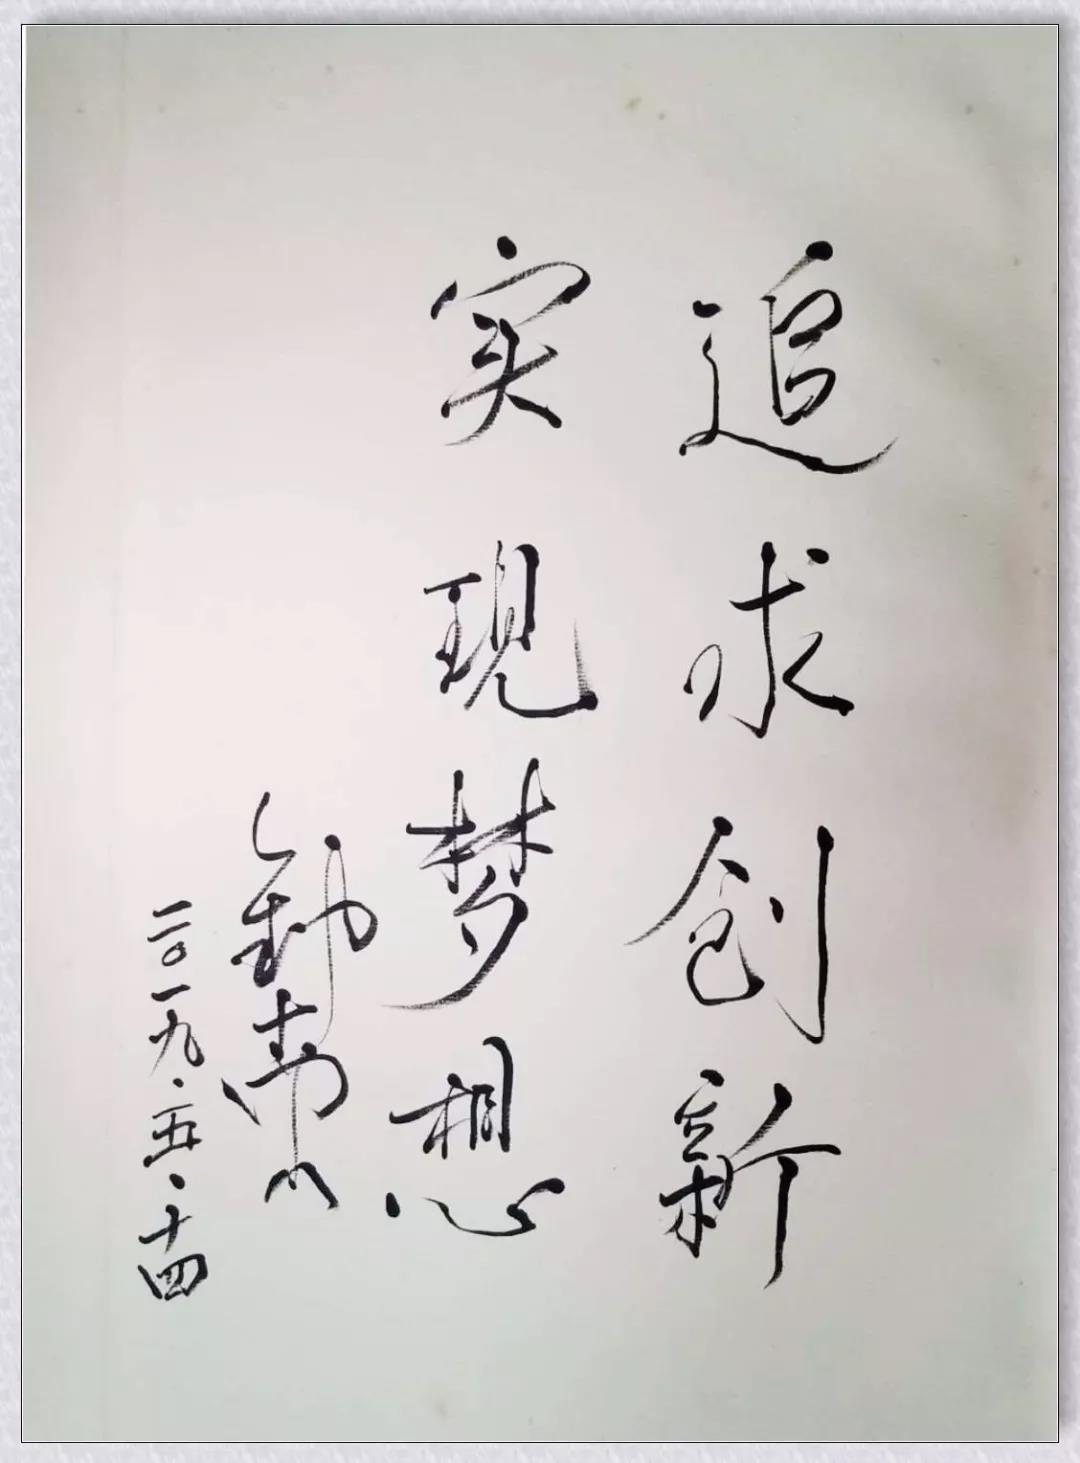 追求创新
实现梦想
二〇一九.五.十四